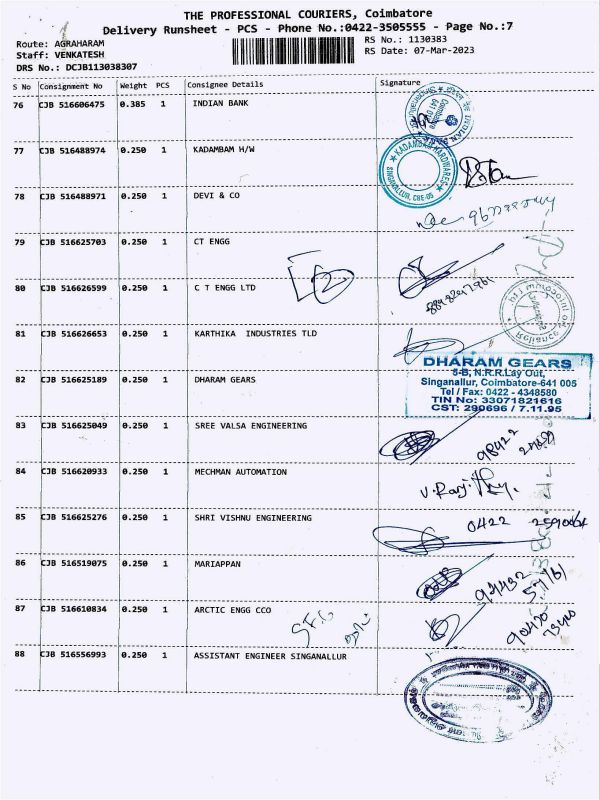 THE PROFESSIONAL COURIERS, Coimbatore
Delivery Runsheet - PCS - Phone No.:0422-3505555 - Page No.:7
Route: AGRAHARAM
Staff: VENKATESH
DRS No.: DCJB113038307
RS No.: 1130383
RS Date: 07-Mar-2023
S No Consignment No Weight PCS Consignee Details Signature
76 CJB 516606475 0.385 1 INDIAN BANK
77 CJB 516488974 0.250 1 KADAMBAM H/W
KADAMBAM HARDWARES
SINGANALLUR, CBE-05
78 CJB 516488971 0.250 1 DEVI & CO
79 CJB 516625703 0.250 1 CT ENGG
80 CJB 516626599 0.250 1 C T ENGG LTD
81 CJB 516626653 0.250 1 KARTHIKA INDUSTRIES TLD
82 CJB 516625189 0.250 1 DHARAM GEARS
DHARAM GEARS
5-B, N.R.R.Lay Out,
Singanallur, Coimbatore-641 005
Tel / Fax: 0422 - 4348580
TIN No: 33071821616
CST: 290696 / 7.11.95
83 CJB 516625049 0.250 1 SREE VALSA ENGINEERING
84 CJB 516620933 0.250 1 MECHMAN AUTOMATION
85 CJB 516625276 0.250 1 SHRI VISHNU ENGINEERING
0422
86 CJB 516519075 0.250 1 MARIAPPAN
87 CJB 516610834 0.250 1 ARCTIC ENGG CCO
88 CJB 516556993 0.250 1 ASSISTANT ENGINEER SINGANALLUR